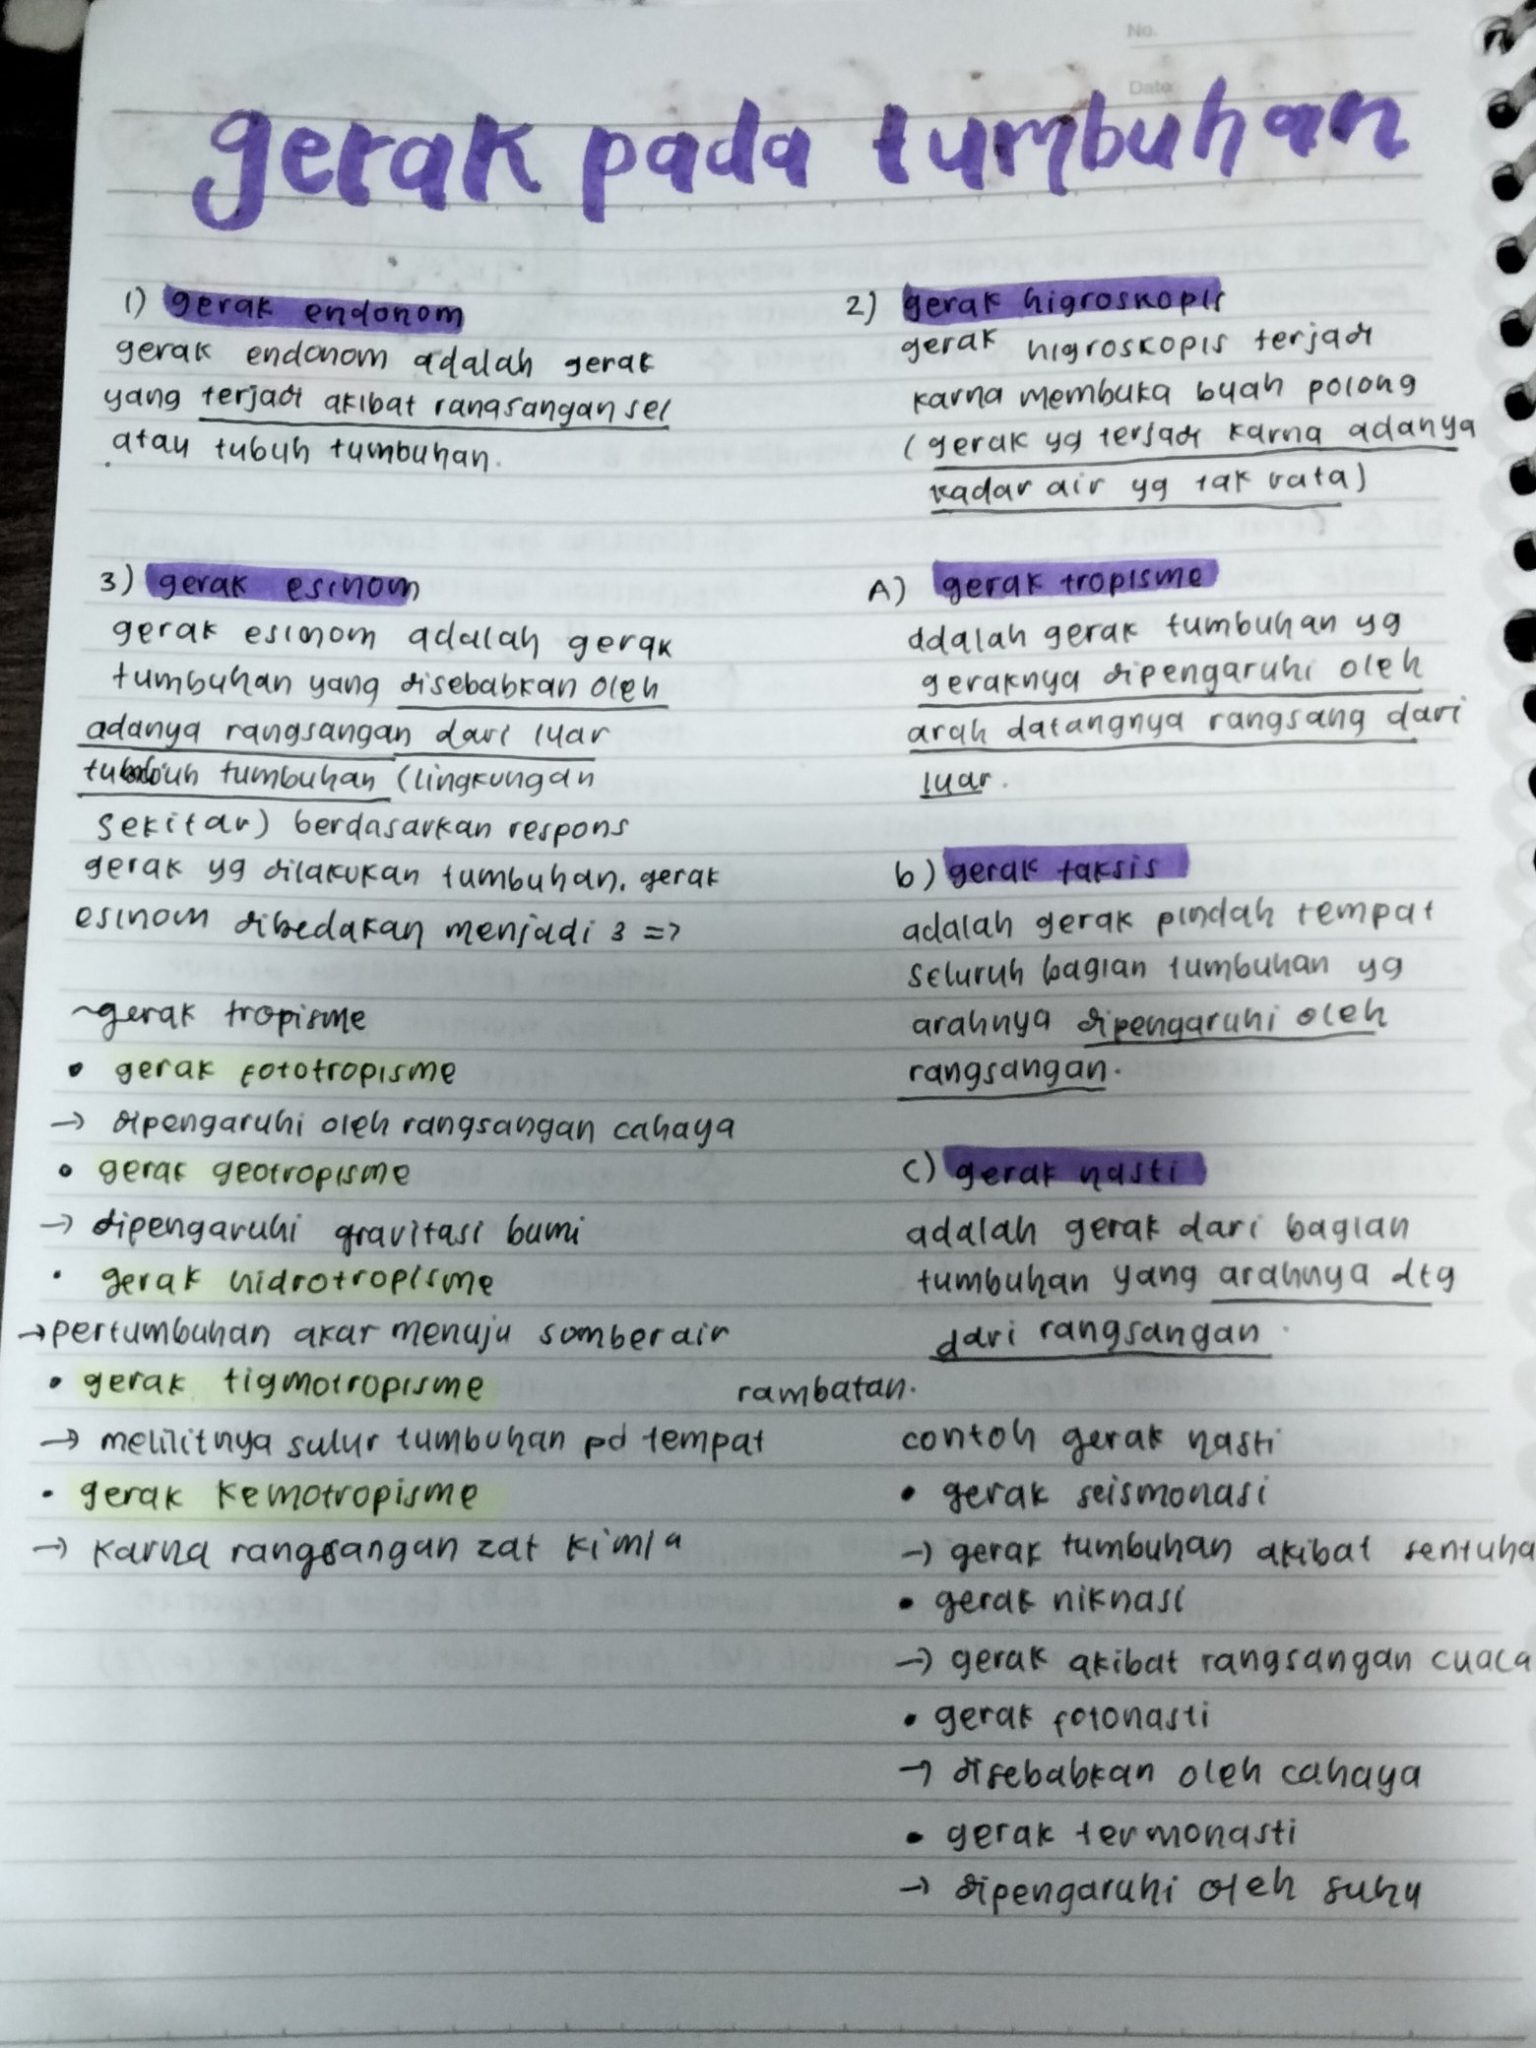 No.
Date
gerak pada tumbuhan
1) gerak endonom
gerak endonom adalah gerak
yang terjadi akibat rangsangan sel
atau tubuh tumbuhan.
2) gerak higroskopis
gerak higroskopis terjadi
karna membuka buah polong
(gerak yg terjadi karna adanya
kadar air yg tak rata)
3) gerak esinom
gerak esinom adalah gerak
tumbuhan yang disebabkan oleh
adanya rangsangan dari luar
tubuh tumbuhan (lingkungan
sekitar) berdasarkan respons
gerak yg dilakukan tumbuhan. gerak
esinom dibedakan menjadi 3 =>
~gerak tropisme
• gerak fototropisme
→ dipengaruhi oleh rangsangan cahaya
• gerak geotropisme
→ dipengaruhi gravitasi bumi
• gerak hidrotropisme
→ pertumbuhan akar menuju somber air
• gerak tigmotropisme
→ melilitnya sulur tumbuhan pd tempat
rambatan.
• gerak kemotropisme
→ karna rangsangan zat kimia
A) gerak tropisme
adalah gerak tumbuhan yg
geraknya dipengaruhi oleh
arah datangnya rangsang dari
luar.
b) gerak taksis
adalah gerak pindah tempat
seluruh bagian tumbuhan yg
arahnya dipengaruhi oleh
rangsangan.
c) gerak nasti
adalah gerak dari bagian
tumbuhan yang arahnya dtg
dari rangsangan
contoh gerak nasti
• gerak seismonasi
→ gerak tumbuhan akibat sentuha
• gerak niknasi
→ gerak akibat rangsangan cuaca
• gerak fotonasti
→ disebabkan oleh cahaya
• gerak termonasti
→ dipengaruhi oleh suhu